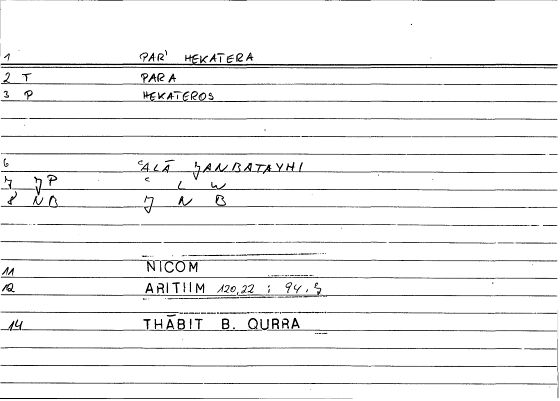 1 PAR' HEKATERA
2 T PARA
3 P HEKATEROS
6 ʿALĀ JANBATAYHI
7 JP ʿ L W
8 NB J N B
11 NICOM
12 ARITIIM 120,22 : 94.
14 THĀBIT B. QURRA